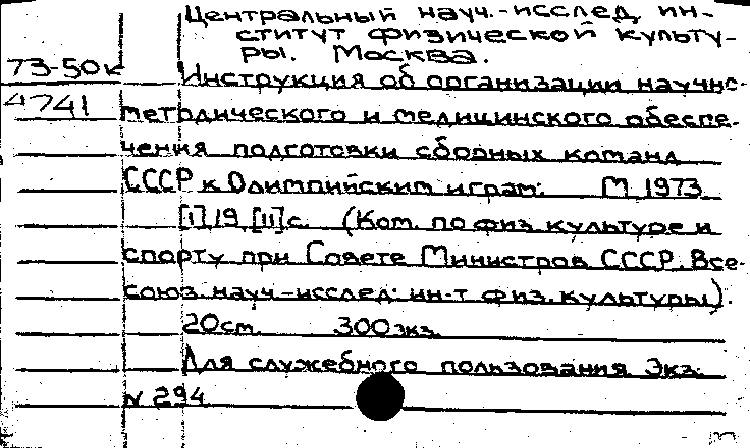 Центральный науч.-исслед. ин-
ститут физической культу-
ры. Москва.
73-50к
Инструкция об организации научно-
4741
методического и медицинского обеспе-
чения подготовки сборных команд
СССР к Олимпийским играм. М 1973
[1], 19 [11] с. (Ком. по физ. культуре и
спорту при Совете Министров СССР. Все-
союз. науч.-исслед. ин-т физ. культуры).
20 см. 300 экз.
Для служебного пользования Экз.
N 294